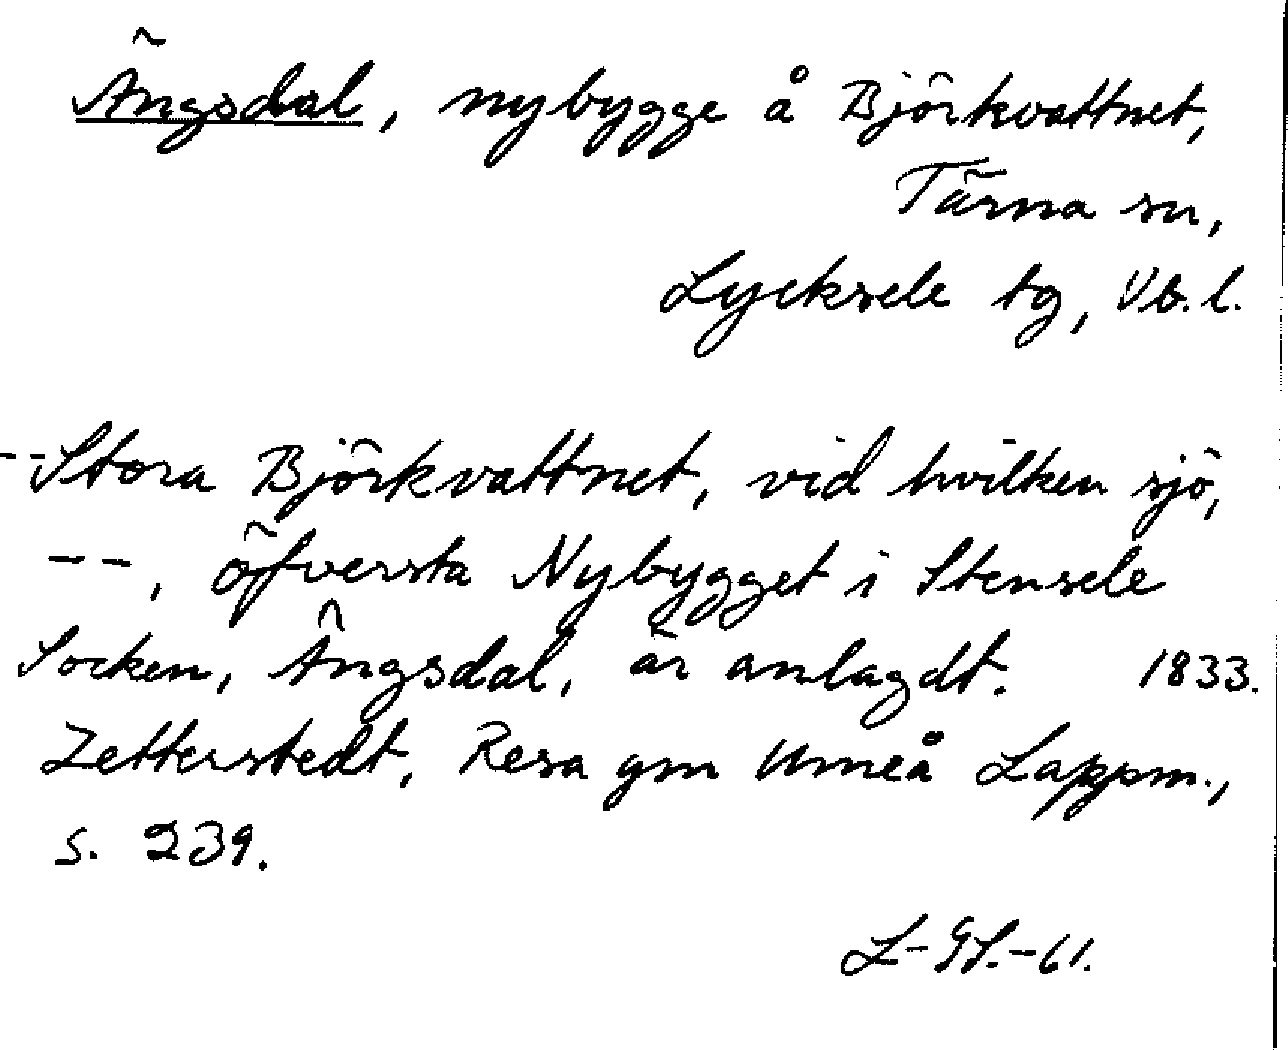 Ängsdal, nybygge å Björkvattnet,
Tärna sn,
Lycksele tg, Vb.l.
--Stora Björkvattnet, vid hvilken sjö,
--, öfversta Nybygget i Stensele
Socken, Ängsdal, är anlagdt. 1833.
Zetterstedt, Resa gm Umeå Lappm.,
s. 239.
L-GS.-61.